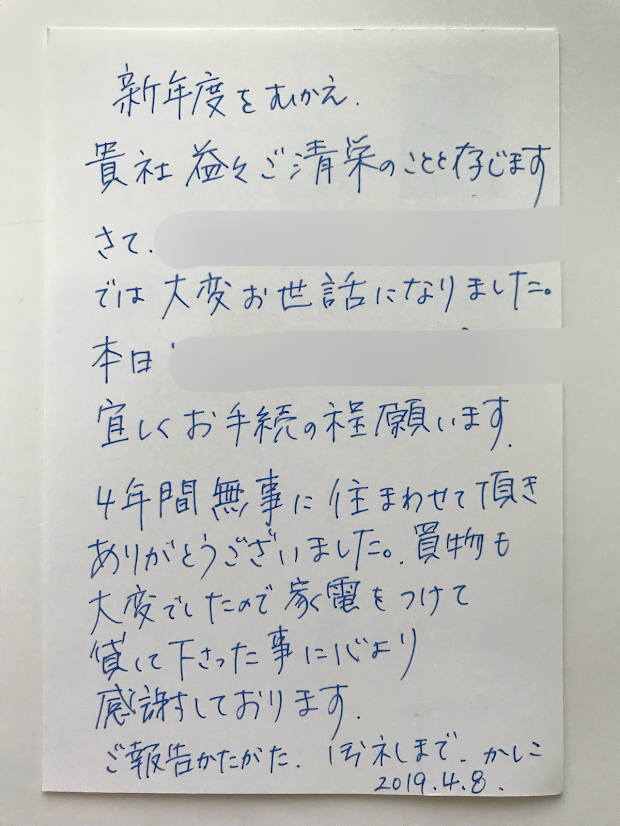 新年度をむかえ.
貴社益々ご清栄のことと存じます
さて.
では大変お世話になりました。
本日
宜しくお手続の程願います.
4年間無事に住まわせて頂き
ありがとうございました。.買物も
大変でしたので家電をつけて
貸して下さった事に心より
感謝しております.
ご報告かたがた.御礼まで.かしこ
2019.4.8.